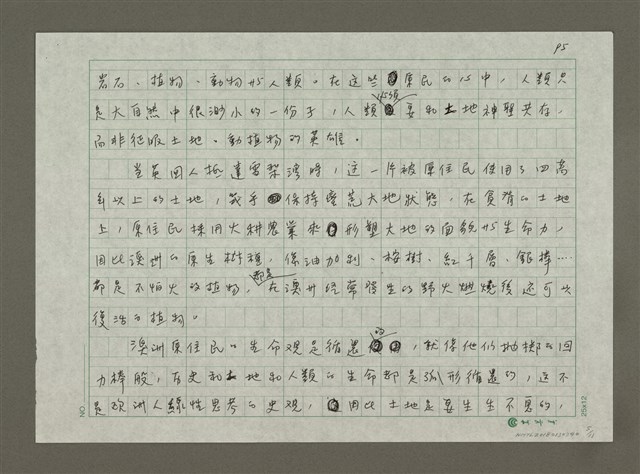 P5
岩石、植物、動物與人類。在這些原民的心中,人類只
是大自然中很渺小的一份子,人類必須要和土地神聖共存,
而非征服土地、動植物的英雄。
當英國人抵達雪梨灣時,這一片被原住民使用了四萬
年以上的土地,幾乎保持蠻荒大地狀態,在貧瘠的土地
上,原住民採用火耕農業來形塑大地的面貌與生命力,
因此澳洲的原生樹種,像油加利、桉樹、紅千層、銀樺……
都是不怕火的植物,都是在澳洲經常發生的野火燃燒後還可以
復活的植物。
澳洲原住民的生命觀是循環的,就像他們拋擲的回
力棒般,歷史和土地和人類的生命都是弧形循環的,這不
是歐洲人線性思考的史觀,因此土地是要生生不息的,
NO.
25x12